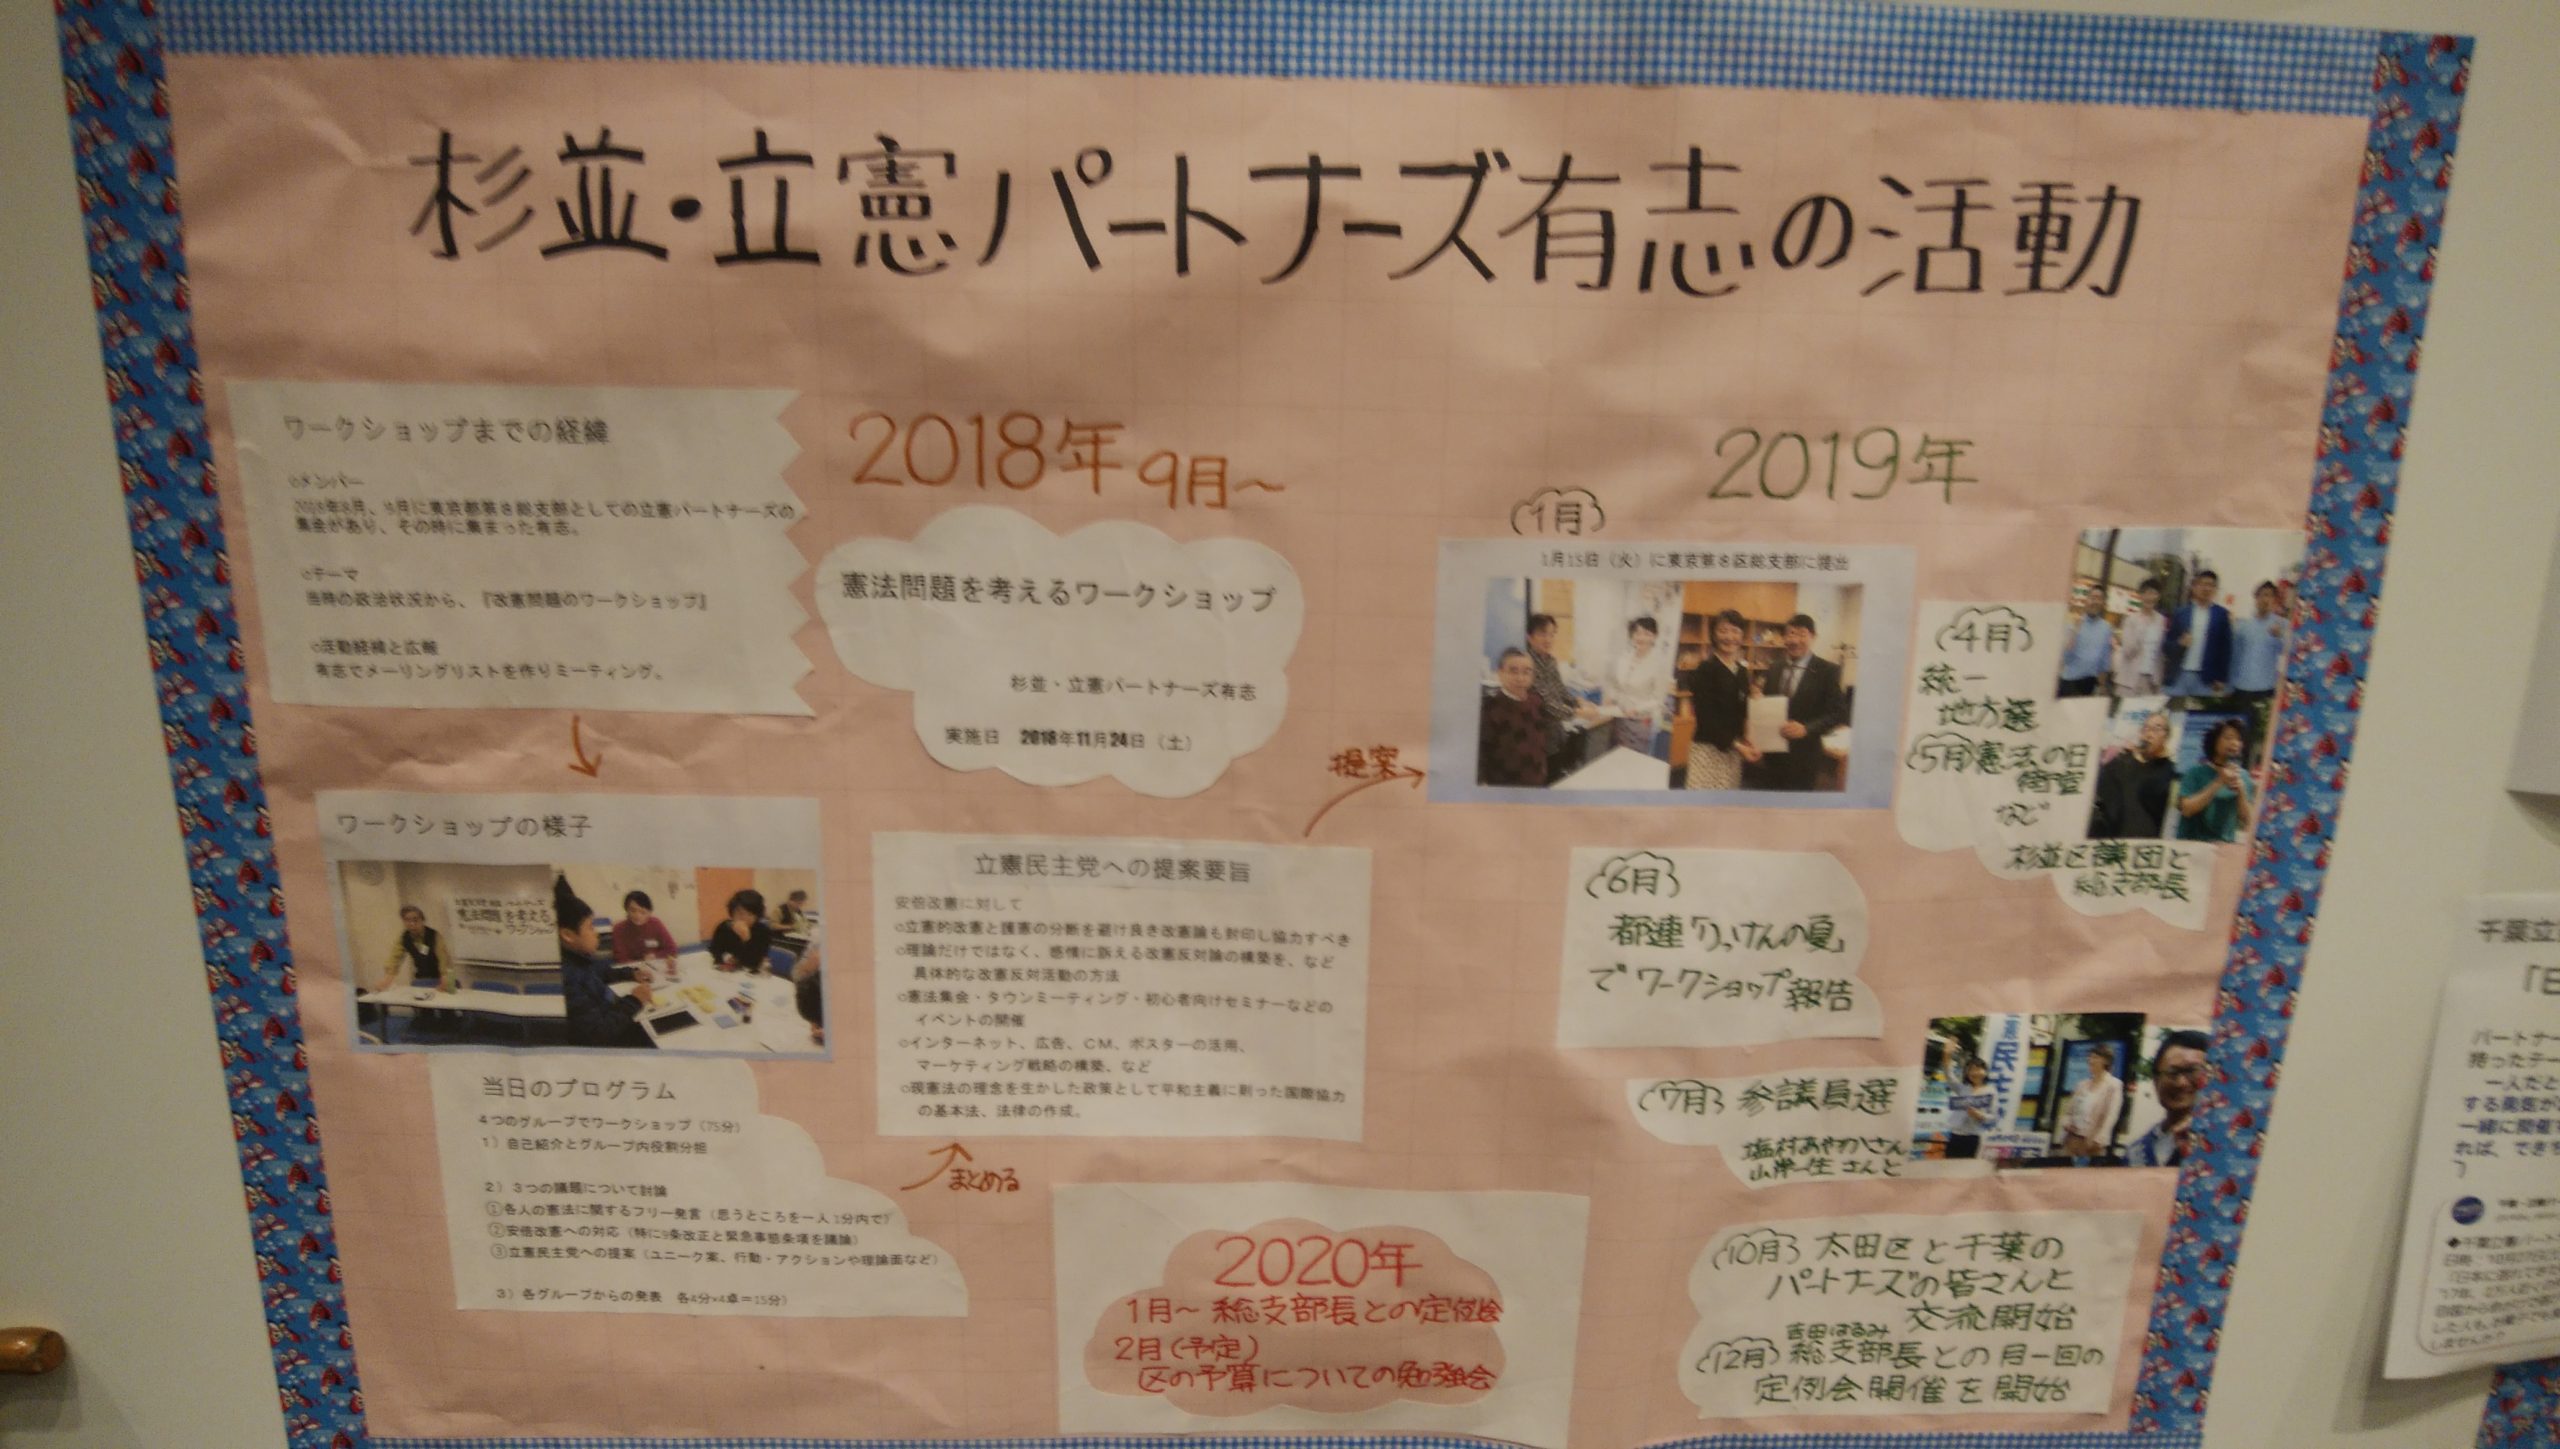 杉並・立憲パートナーズ有志の活動
ワークショップまでの経緯
○メンバー
2018年8月、9月に東京都第8総支部としての立憲パートナーズの
集会があり、その時に集まった有志。
○テーマ
当時の政治状況から、『改憲問題のワークショップ』
○活動経緯と広報
有志でメーリングリストを作りミーティング。
ワークショップの様子
憲法問題を考える
ワークショップ
当日のプログラム
4つのグループでワークショップ（75分）
1）自己紹介とグループ内役割分担
2）3つの議題について討論
①各人の憲法に関するフリー発言（思うところを一人1分内で）
②安倍改憲への対応（特に9条改正と緊急事態条項を議論）
③立憲民主党への提案（ユニーク案、行動・アクションや理論面など）
3）各グループからの発表　各4分×4卓＝15分）
2018年 9月〜
憲法問題を考えるワークショップ
杉並・立憲パートナーズ有志
実施日　2018年11月24日（土）
立憲民主党への提案要旨
安倍改憲に対して
○立憲的改憲と護憲の分断を避け良き改憲論も封印し協力すべき
○理論だけではなく、感情に訴える改憲反対論の構築を、など
具体的な改憲反対活動の方法
○憲法集会・タウンミーティング・初心者向けセミナーなどの
イベントの開催
○インターネット、広告、CM、ポスターの活用、
マーケティング戦略の構築、など
○現憲法の理念を生かした政策として平和主義に則った国際協力
の基本法、法律の作成。
まとめる
提案
2019年
1月
1月15日（火）に東京第8区総支部に提出
4月
統一
地方選
5月 憲法の日
街宣
など
杉並区議団と
総支部長
6月
都連「りっけんの夏」
でワークショップ報告
7月 参議員選
塩村あやかさん
山岸一生さんと
10月 太田区と千葉の
パートナーズの皆さんと
交流開始
吉田はるみ
12月 総支部長との月一回の
定例会開催を開始
2020年
1月〜 総支部長との定例会
2月（予定）
区の予算についての勉強会
千葉立
パートナー
持ったテー
一人だと
一緒に開催
れば、でき
しませんか？